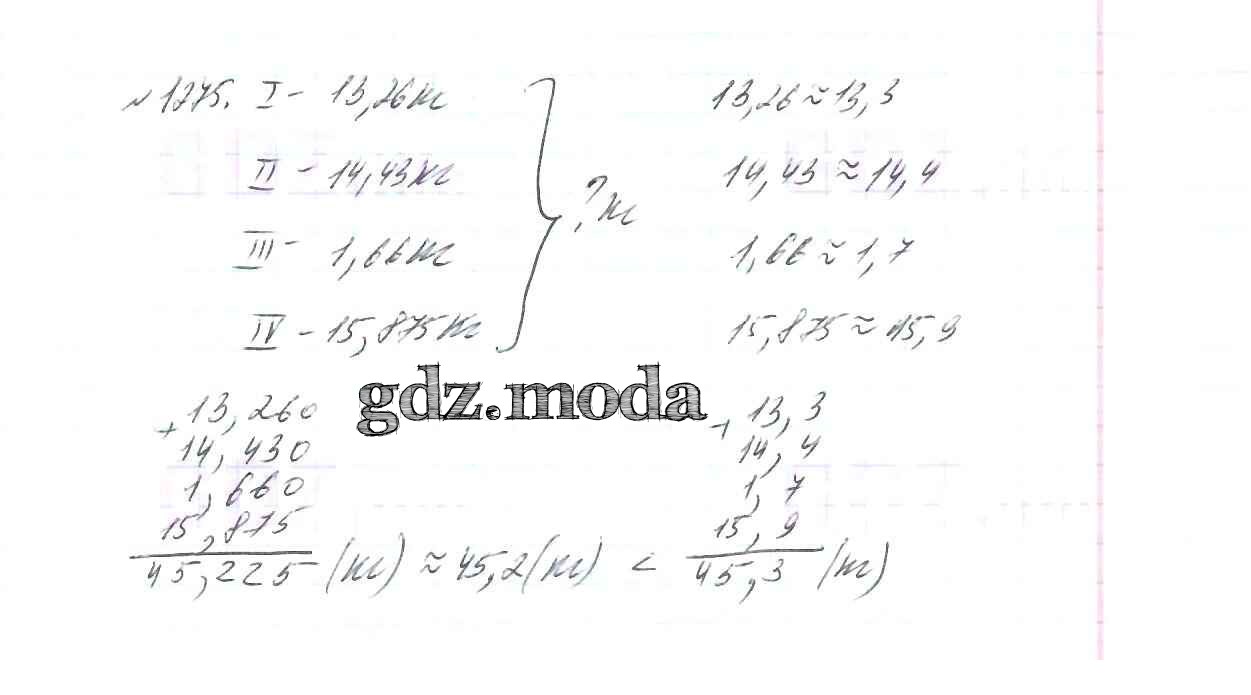 №1275. I - 13,26кг 13,26 ≈ 13,3
II - 14,43кг 14,43 ≈ 14,4
? кг
III - 1,66кг 1,66 ≈ 1,7
IV - 15,875кг 15,875 ≈ 15,9
gdz.moda
+ 13,260 + 13,3
14,430 14,4
1,660 1,7
15,875 15,9
45,225 (кг) ≈ 45,2 (кг) < 45,3 (кг)